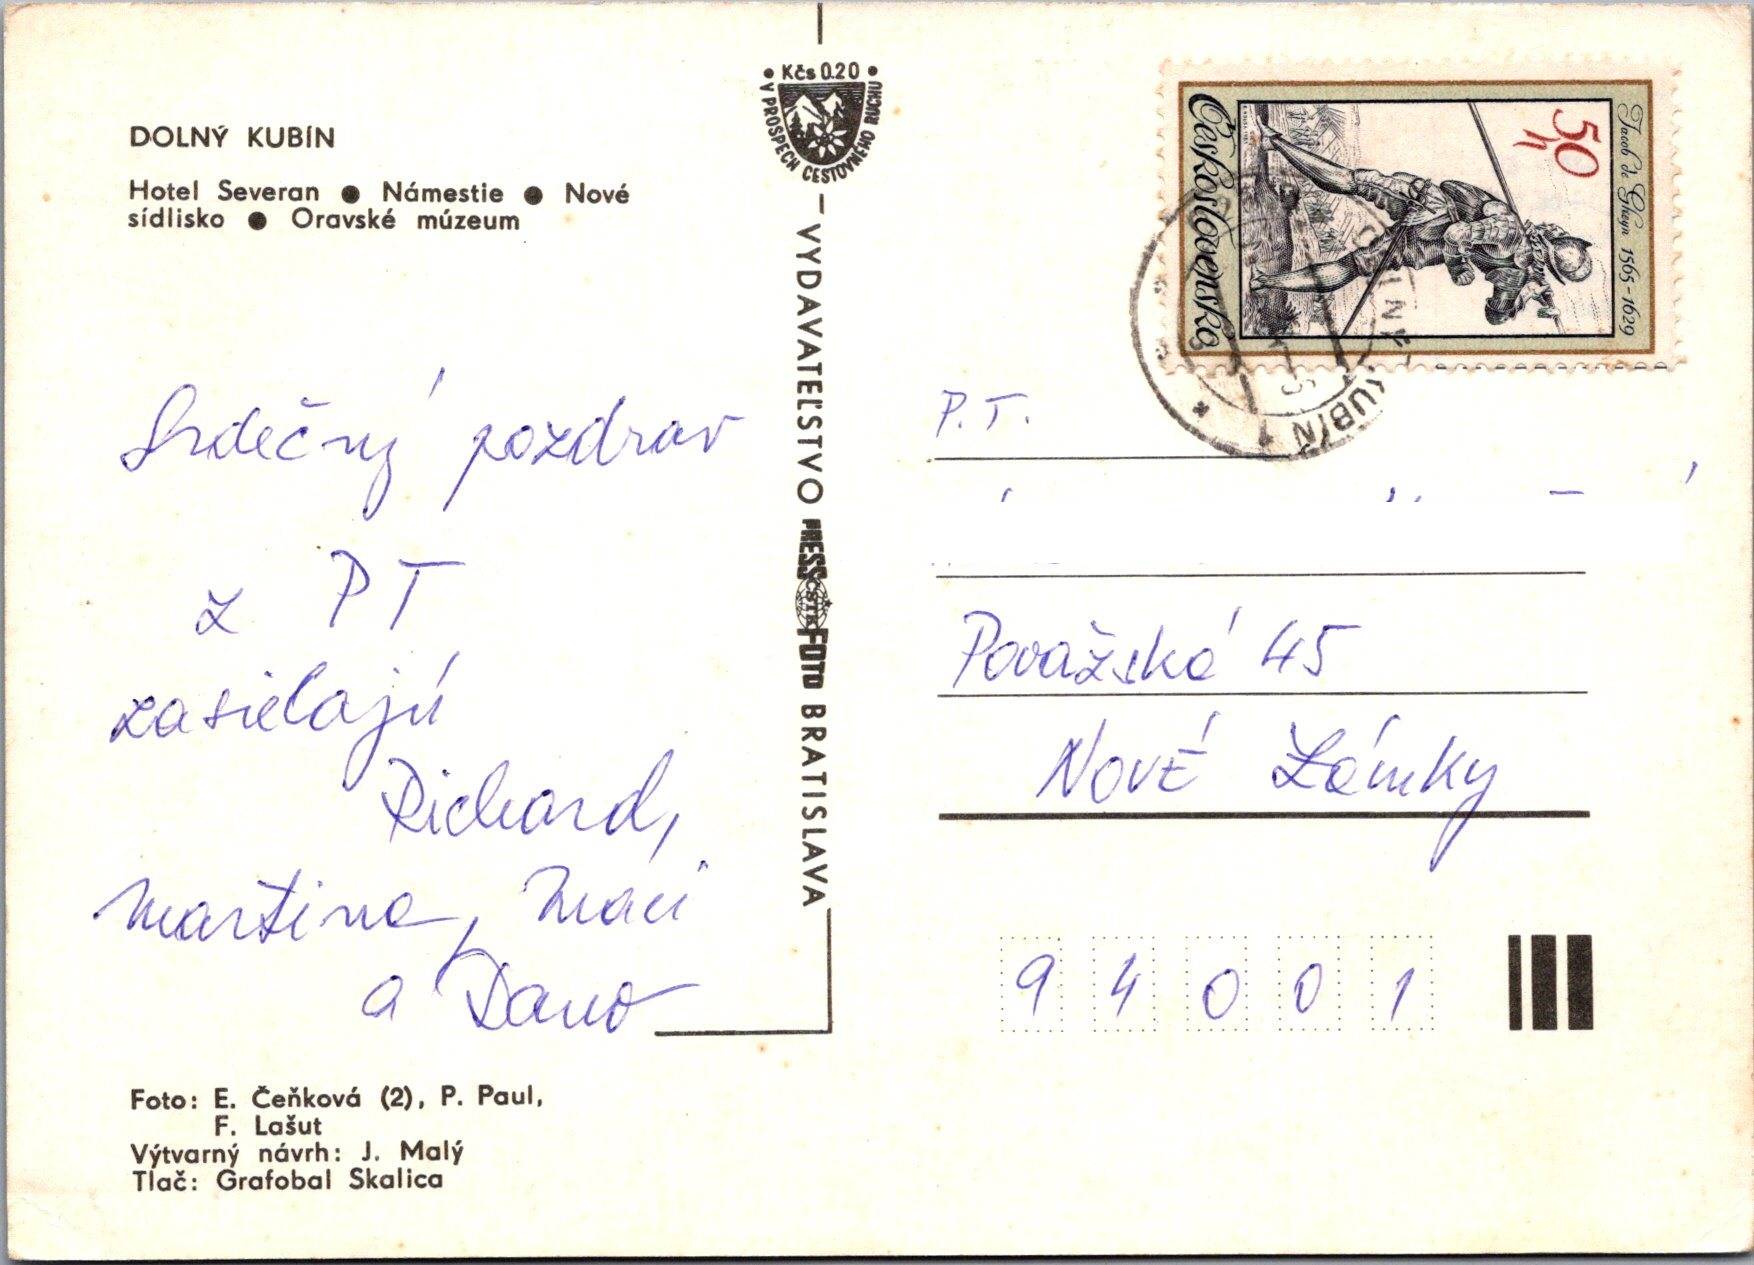 DOLNÝ KUBÍN
Hotel Severan ● Námestie ● Nové
sídlisko ● Oravské múzeum
Srdečný pozdrav
z PT
zasielajú
Richard,
Martina,
a Dano
Foto: E. Čeňková (2), P. Paul,
F. Lašut
Výtvarný návrh: J. Malý
Tlač: Grafobal Skalica
● Kčs 0.20 ●
V PROSPECH CESTOVNÉHO RUCHU
VYDAVATEĽSTVO PRESSFOTO BRATISLAVA
ČSTK
Československo
50 h
Jacob de Gheyn 1565-1629
DOLNÝ KUBÍN
P.T.
Považská 45
Nové Zámky
94001